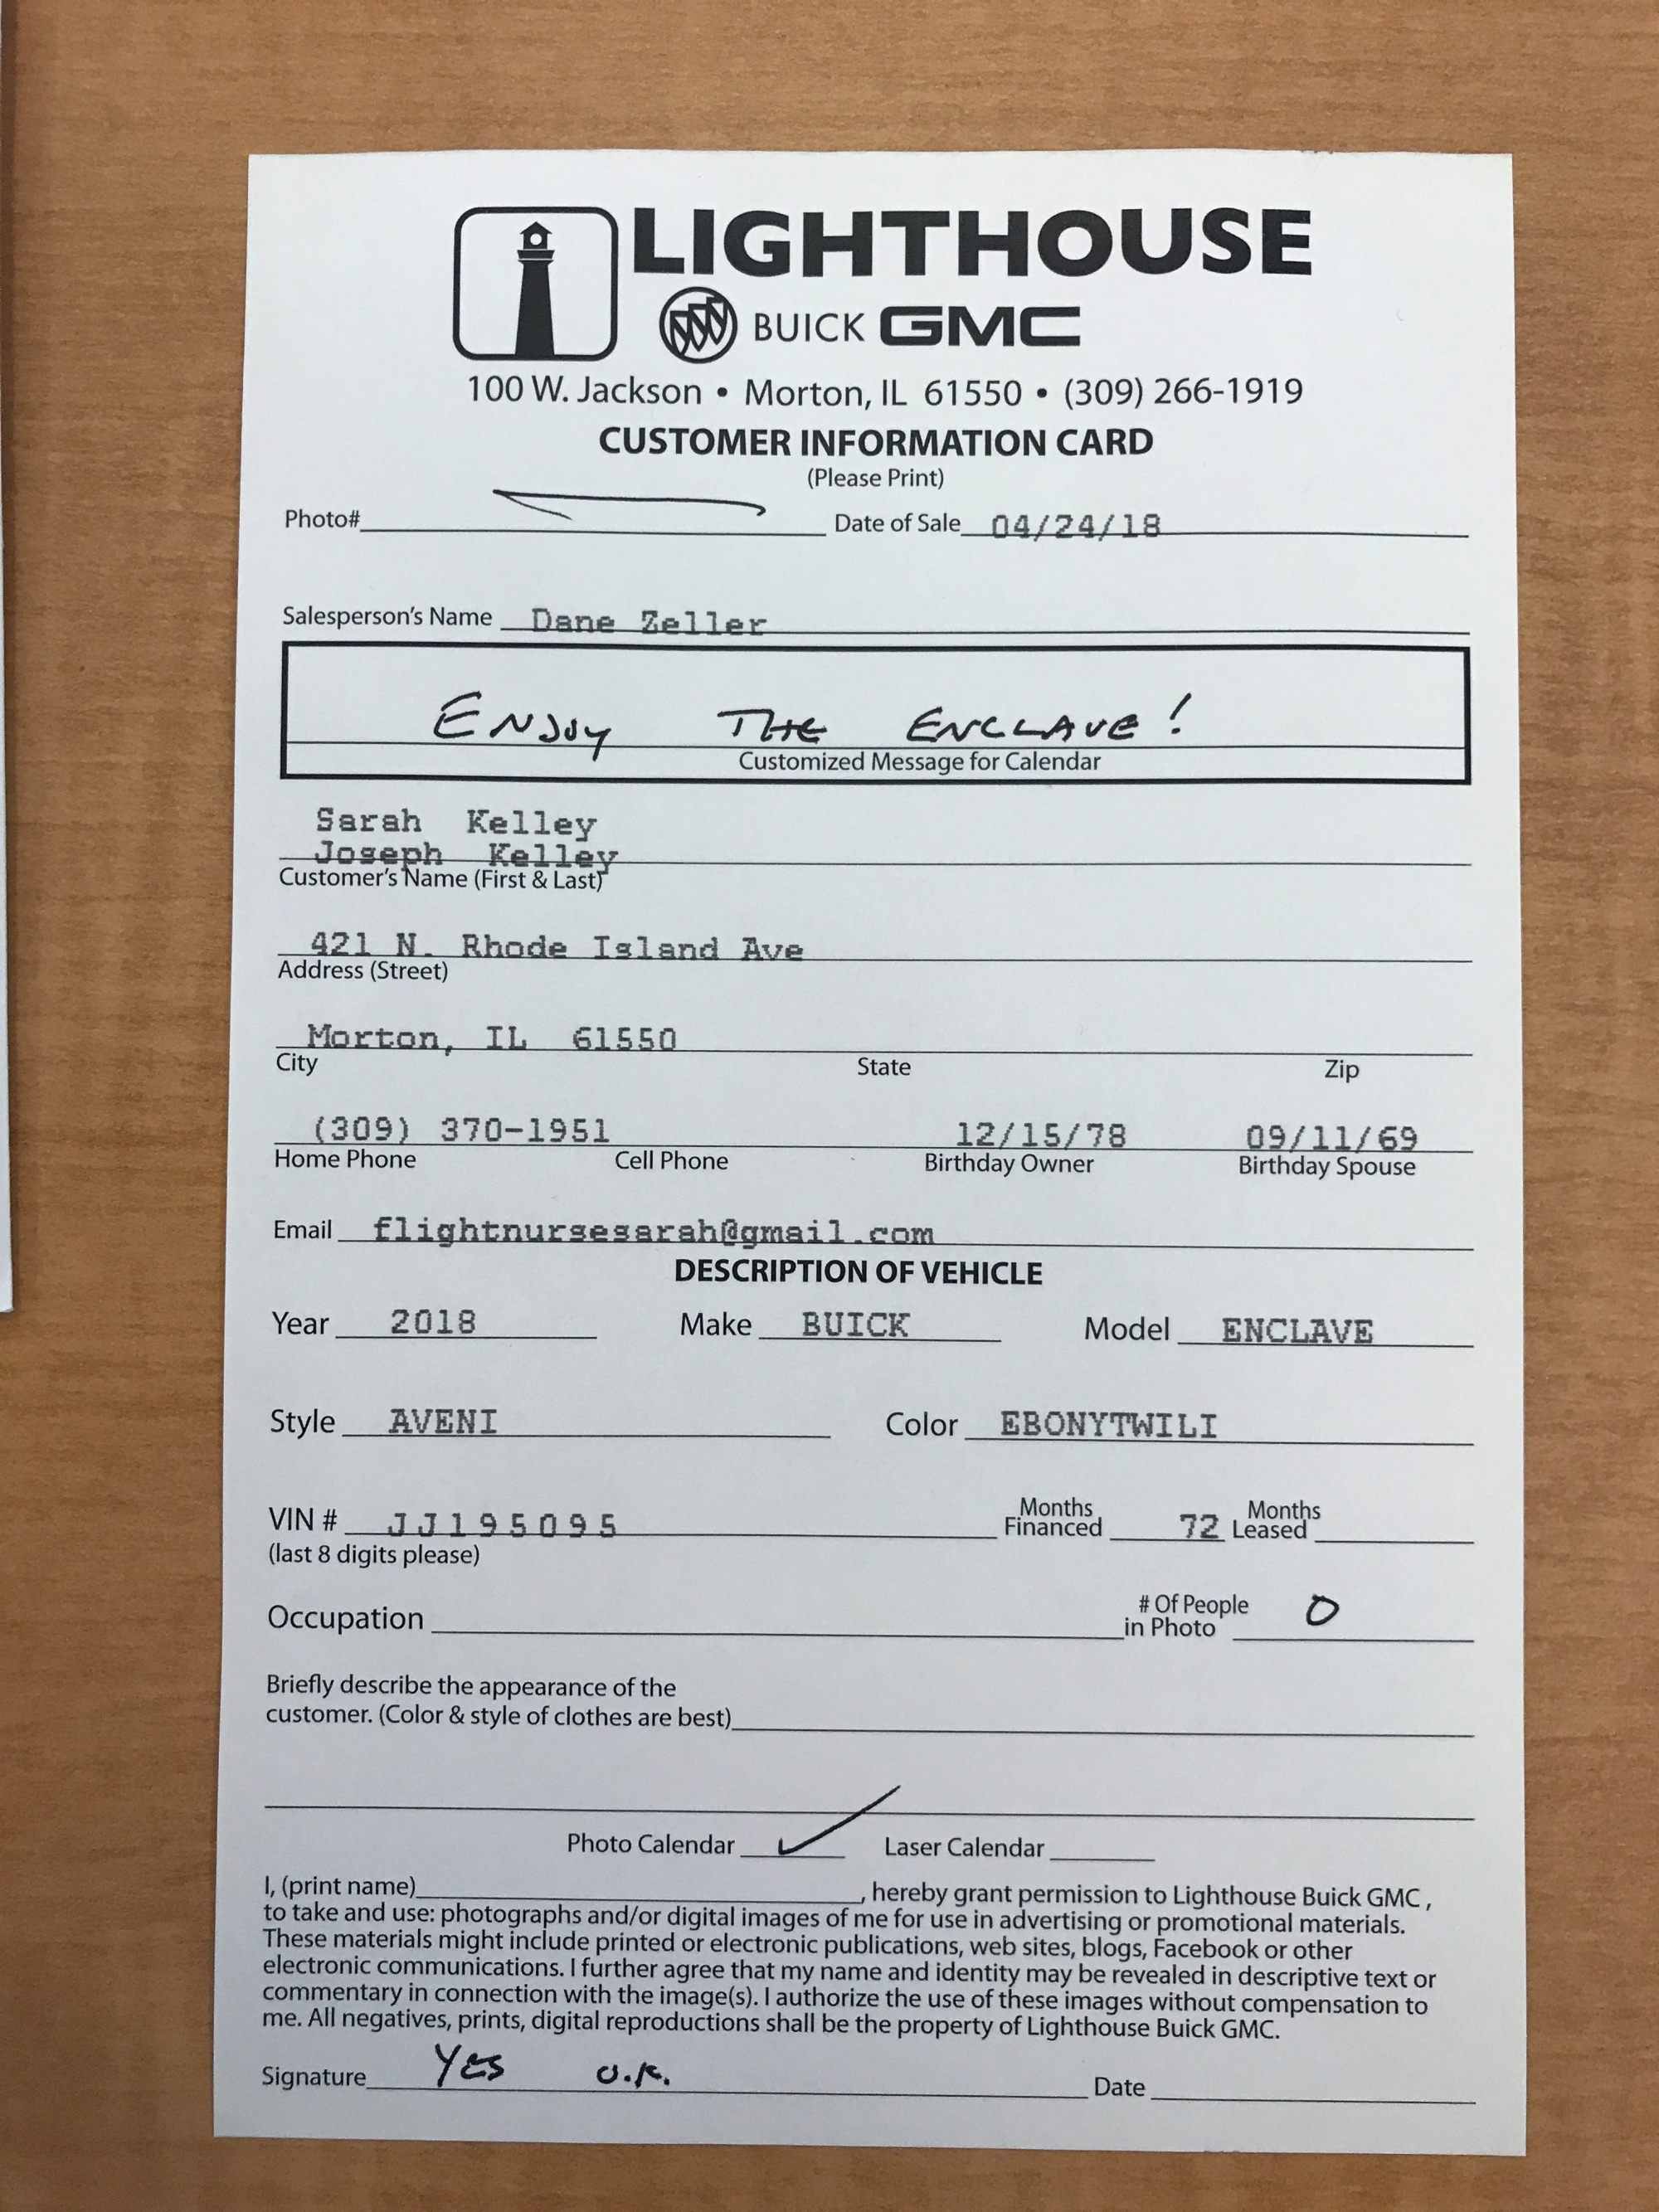 LIGHTHOUSE
BUICK GMC
100 W. Jackson • Morton, IL 61550 • (309) 266-1919
CUSTOMER INFORMATION CARD
(Please Print)
Photo# Date of Sale 04/24/18
Salesperson's Name Dane Zeller
ENJOY THE ENCLAVE!
Customized Message for Calendar
Sarah Kelley
Joseph Kelley
Customer's Name (First & Last)
421 N. Rhode Island Ave
Address (Street)
Morton, IL 61550
City State Zip
(309) 370-1951 12/15/78 09/11/69
Home Phone Cell Phone Birthday Owner Birthday Spouse
Email flightnursesarah@gmail.com
DESCRIPTION OF VEHICLE
Year 2018 Make BUICK Model ENCLAVE
Style AVENI Color EBONYTWILI
VIN # JJ195095 Months Financed 72 Months Leased
(last 8 digits please)
Occupation # Of People in Photo 0
Briefly describe the appearance of the
customer. (Color & style of clothes are best)
Photo Calendar ✓ Laser Calendar
I, (print name) , hereby grant permission to Lighthouse Buick GMC ,
to take and use: photographs and/or digital images of me for use in advertising or promotional materials.
These materials might include printed or electronic publications, web sites, blogs, Facebook or other
electronic communications. I further agree that my name and identity may be revealed in descriptive text or
commentary in connection with the image(s). I authorize the use of these images without compensation to
me. All negatives, prints, digital reproductions shall be the property of Lighthouse Buick GMC.
Signature YES O.K. Date